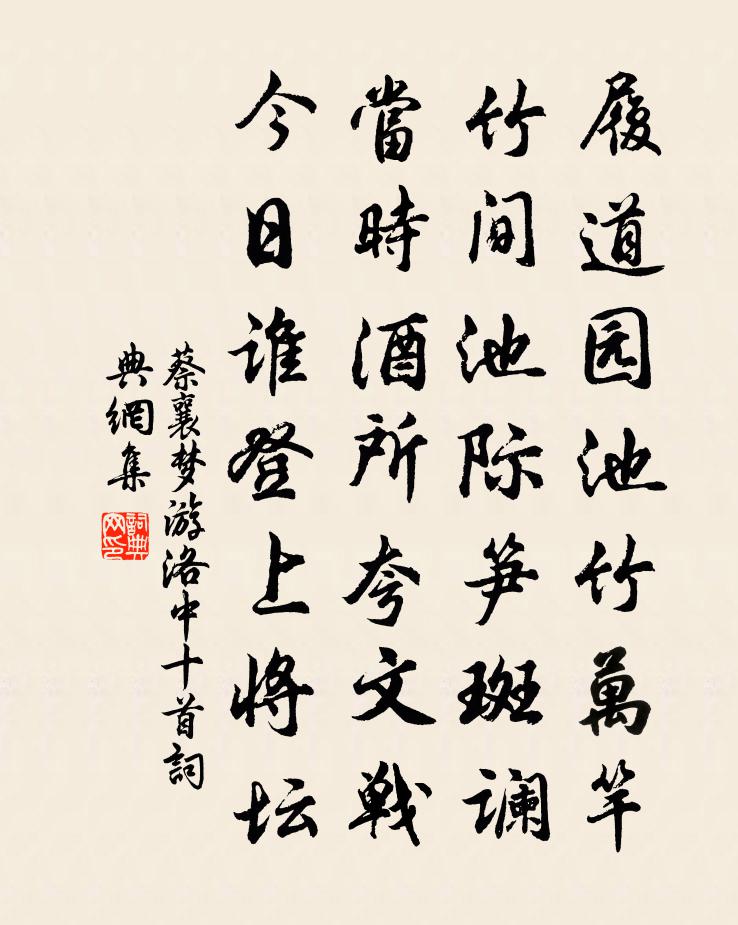 履道园池竹萬竿
竹间池际笋斑谰
當時酒所夸文戦
今日谁登上将坛
蔡襄梦游洛中十首詞
典網集
詞典網印